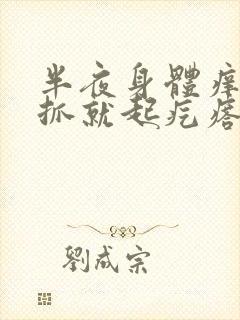 半夜身體痒
抓就起疙瘩
劉成宗